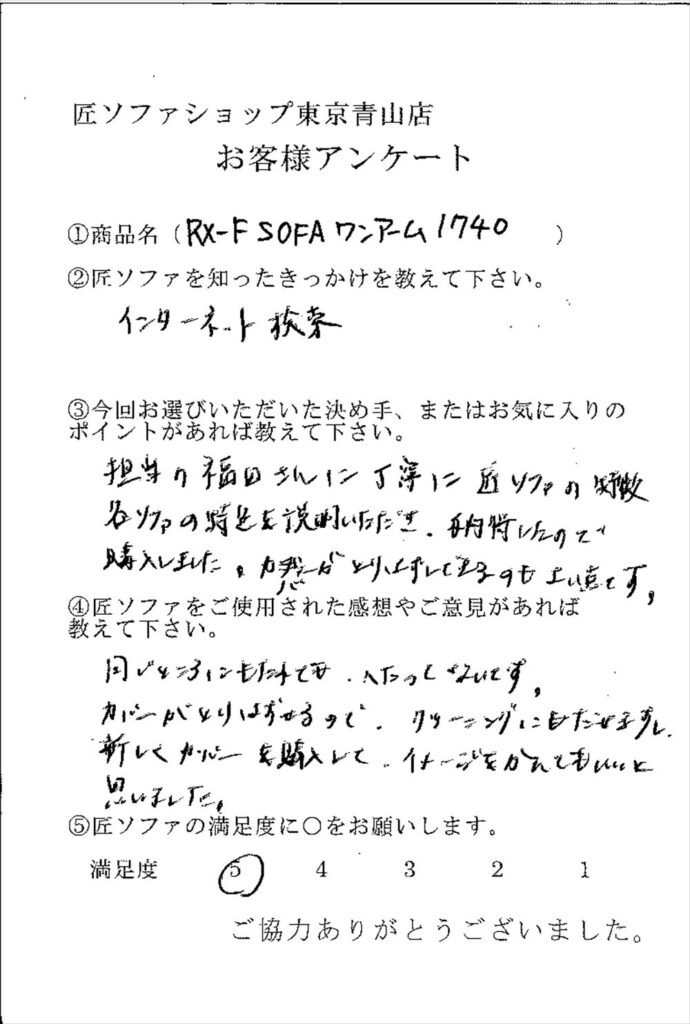 匠ソファショップ東京青山店
お客様アンケート
①商品名（RX-F SOFA ワンアーム1740）
②匠ソファを知ったきっかけを教えて下さい。
インターネット検索
③今回お選びいただいた決め手、またはお気に入りの
ポイントがあれば教えて下さい。
担当の福田さんに丁寧に匠ソファの特徴
各ソファの特長を説明いただき、納得したので
購入しました。カバーがとりはずしできるのも
④匠ソファをご使用された感想やご意見があれば
教えて下さい。
同じところにもたれても、へたっしないです。
カバーがとりはずせるので、クリーニングにもだせますし、
新しくカバーを購入して、イメージをかえてもいいと
思いました。
⑤匠ソファの満足度に○をお願いします。
満足度 5 4 3 2 1
ご協力ありがとうございました。